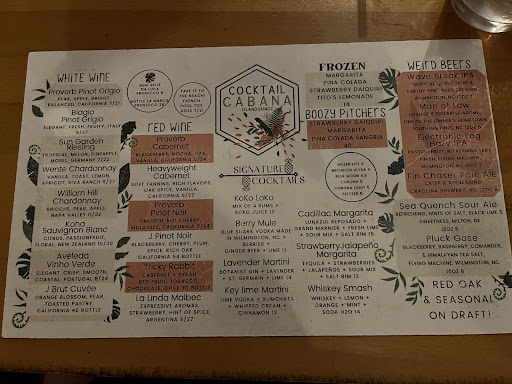 WHITE WINE
Proverb Pinot Grigio
PEAR, APPLE, BRIGHT,
BALANCED, CALIFORNIA 7/21
Biagio
Pinot Grigio
ELEGANT, FRESH, FRUIT, ITALY
9/27
Sun Garden
Riesling
TROPICAL, MELON, PINEAPPLE,
MOSEL, GERMANY 7/22
Wente Chardonnay
VANILLA, TOAST, LEMON,
APRICOT, RIVA RANCH 11/33
William Hill
Chardonnay
BRIOCHE, PEAR, APPLE,
NAPA VALLEY 11/32
Koha
Sauvignon Blanc
CITRUS, PASSIONFRUIT,
FLORAL, NEW ZEALAND 11/30
Aveleda
Vinho Verde
ELEGANT, CRISP, SMOOTH,
COASTAL, PORTUGAL 8/22
J Brut Cuvée
ORANGE BLOSSOM, PEAR,
TOASTED PASTRY,
CALIFORNIA 40 BOTTLE
MINI SPLIT
DA LUCA
PROSECCO 8
BOTTLE LA MARCA
PROSECCO 28
TAKE IT TO
THE BEACH!
FRENCH
POOL TOY
ROSÉ 7/22
RED WINE
Proverb
Cabernet
BLACKBERRY, MOCHA, OAK,
VANILLA, CALIFORNIA 7/24
Heavyweight
Cabernet
SOFT TANNINS, RICH FLAVORS,
OAK SPICE, VANILLA,
CALIFORNIA 9/27
Proverb
Pinot Noir
SMOOTH, RED CHERRY,
MULBERRY, CALIFORNIA 7/24
J Pinot Noir
BLACKBERRY, CHERRY, PLUM,
SPICE, RICH OAK
CALIFORNIA 54 BOTTLE
Tricky Rabbit
CABERNET + SYRAH
RED FRUIT, TOBACCO,
CHOCOLATE, CHILE 30 BOTTLE
La Linda Malbec
EXPRESSIVE AROMAS,
STRAWBERRY, HINT OF SPICE,
ARGENTINA 9/27
COCKTAIL
CABANA
SIGNATURE
COCKTAILS
KoKo LoKo
MIX OF 4 RUMS +
KOKO JUICE 13
Berry Mule
BLUE SHARK VODKA MADE
IN WILMINGTON, NC +
BERRIES +
GINGER BEER + LIME 11
Lavender Martini
BOTANIST GIN + LAVENDER
+ ST. GERMAIN + LIME 14
Key lime Martini
LIME VODKA + RUMCHATA
+ WHIPPED CREAM +
CINNAMON 12
FROZEN
MARGARITA
PINA COLADA
STRAWBERRY DAIQUIRI
TITO'S LEMONADE
14
BOOZY PITCHERS
STRAWBERRY DAIQUIRI
MARGARITA
PINA COLADA SANGRIA
40
MILLER LITE 4
MICHELOB ULTRA 4
BLUE MOON 4.5
CORONA 5
CORONA LIGHT 5
SELTZER 5
Cadillac Margarita
LUNAZUL REPOSADO +
GRAND MARNIER + FRESH LIME
+ SOUR MIX + SALT RIM 15
StrawberryJalapeño
Margarita
TEQUILA + STRAWBERRIES
+ JALAPEÑOS + SOUR MIX
+ SALT RIM 13
Whiskey Smash
WHISKEY + LEMON +
ORANGE + MINT +
SODA H2O 14
WEIRD BEERS
Wave Break IPA
Man of Law
ORANGE & PINEAPPLE AROMA,
FROM THE OWNER'S HOMETOWN
Electronic Fog
Hazy IPA
FLYING MACHINE,
Fin Chaser Pale Ale
CRISP & REFRESHING
Sea Quench Sour Ale
REFRESHING, HINTS OF SALT, BLACK LIME &
SWEETNESS, MILTON, DE
12OZ 5
Pluck Gose
BLACKBERRY, RASPBERRY, CORIANDER,
& HIMALAYAN SEA SALT,
FLYING MACHINE, WILMINGTON, NC
RED OAK
& SEASONAL
ON DRAFT!